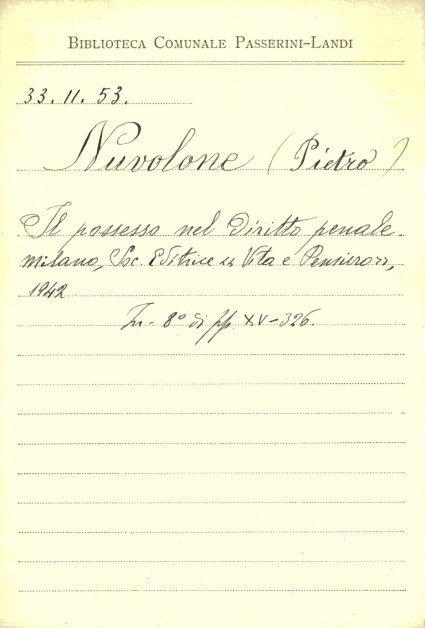 BIBLIOTECA COMUNALE PASSERINI-LANDI
33.11.53.
Nuvolone (Pietro)
Il possesso nel Diritto penale.
Milano, Soc. Editrice « Vita e Pensiero »,
1942
In-8° di pp XV-326.